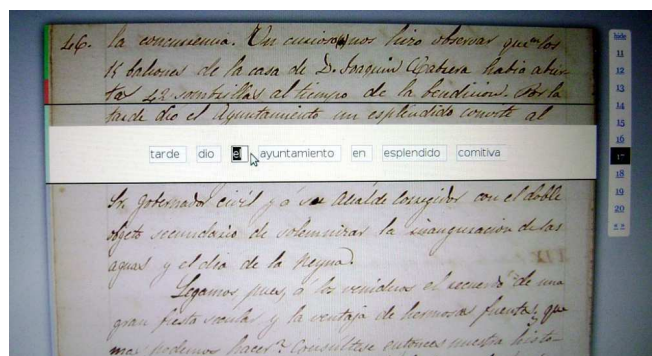 46. la concurrencia. Un curioso nos hizo observar que los
15 balcones de la casa de D. Joaquin Catrera habia abier
tas 42 sombrillas al tiempo de la bendicion. Por la
tarde dio el Ayuntamiento un esplendido convite al
tarde dio el ayuntamiento en esplendido comitiva
Sr. Gobernador civil y á su Alcalde Corregidor con el doble
objeto secundario de solemnizar la inauguracion de las
aguas y el dia de la Reyna.
Legamos pues, á los venideros el recuerdo de una
gran fiesta secular y la ventaja de hermosas fuentes, que
mas podemos hacer? Consultese entonces nuestra histo-
hide
11
12
13
14
15
16
17
18
19
20